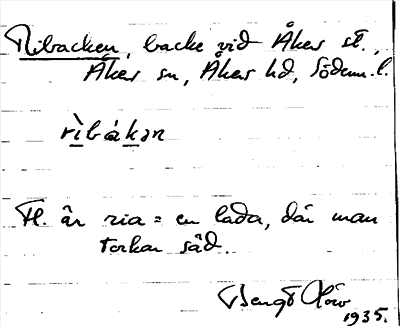 Ribacken, backe vid Åkers st.,
Åkers sn, Åkers hd, Söderm. l.
rìbákən
Fl. är ria = en lada, där man
torkar säd.
Bengt
1935.